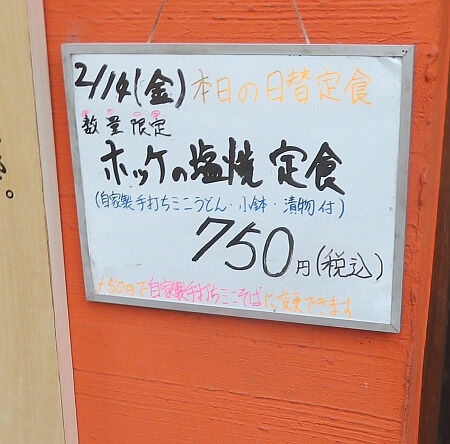 2/14(金)本日の日替定食
数量限定
ホッケの塩焼定食
(自家製手打ちミニうどん・小鉢・漬物付)
750円(税込)
+50円で自家製手打ちミニそばに変更できます
。